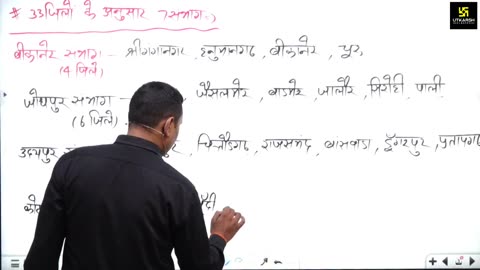 * 33 जिलो के अनुसार 7 संभाग :-
UTKARSH
बीकानेर संभाग - श्रीगंगानगर, हनुमानगढ, बीकानेर, चूरू,
(4 जिले)
जोधपुर संभाग - जैसलमेर, बाडमेर, जालौर, सिरोही, पाली.
(6 जिले)
उदयपुर चित्तौडगढ, राजसमंद, बासवाडा, डूंगरपुर, प्रतापगढ